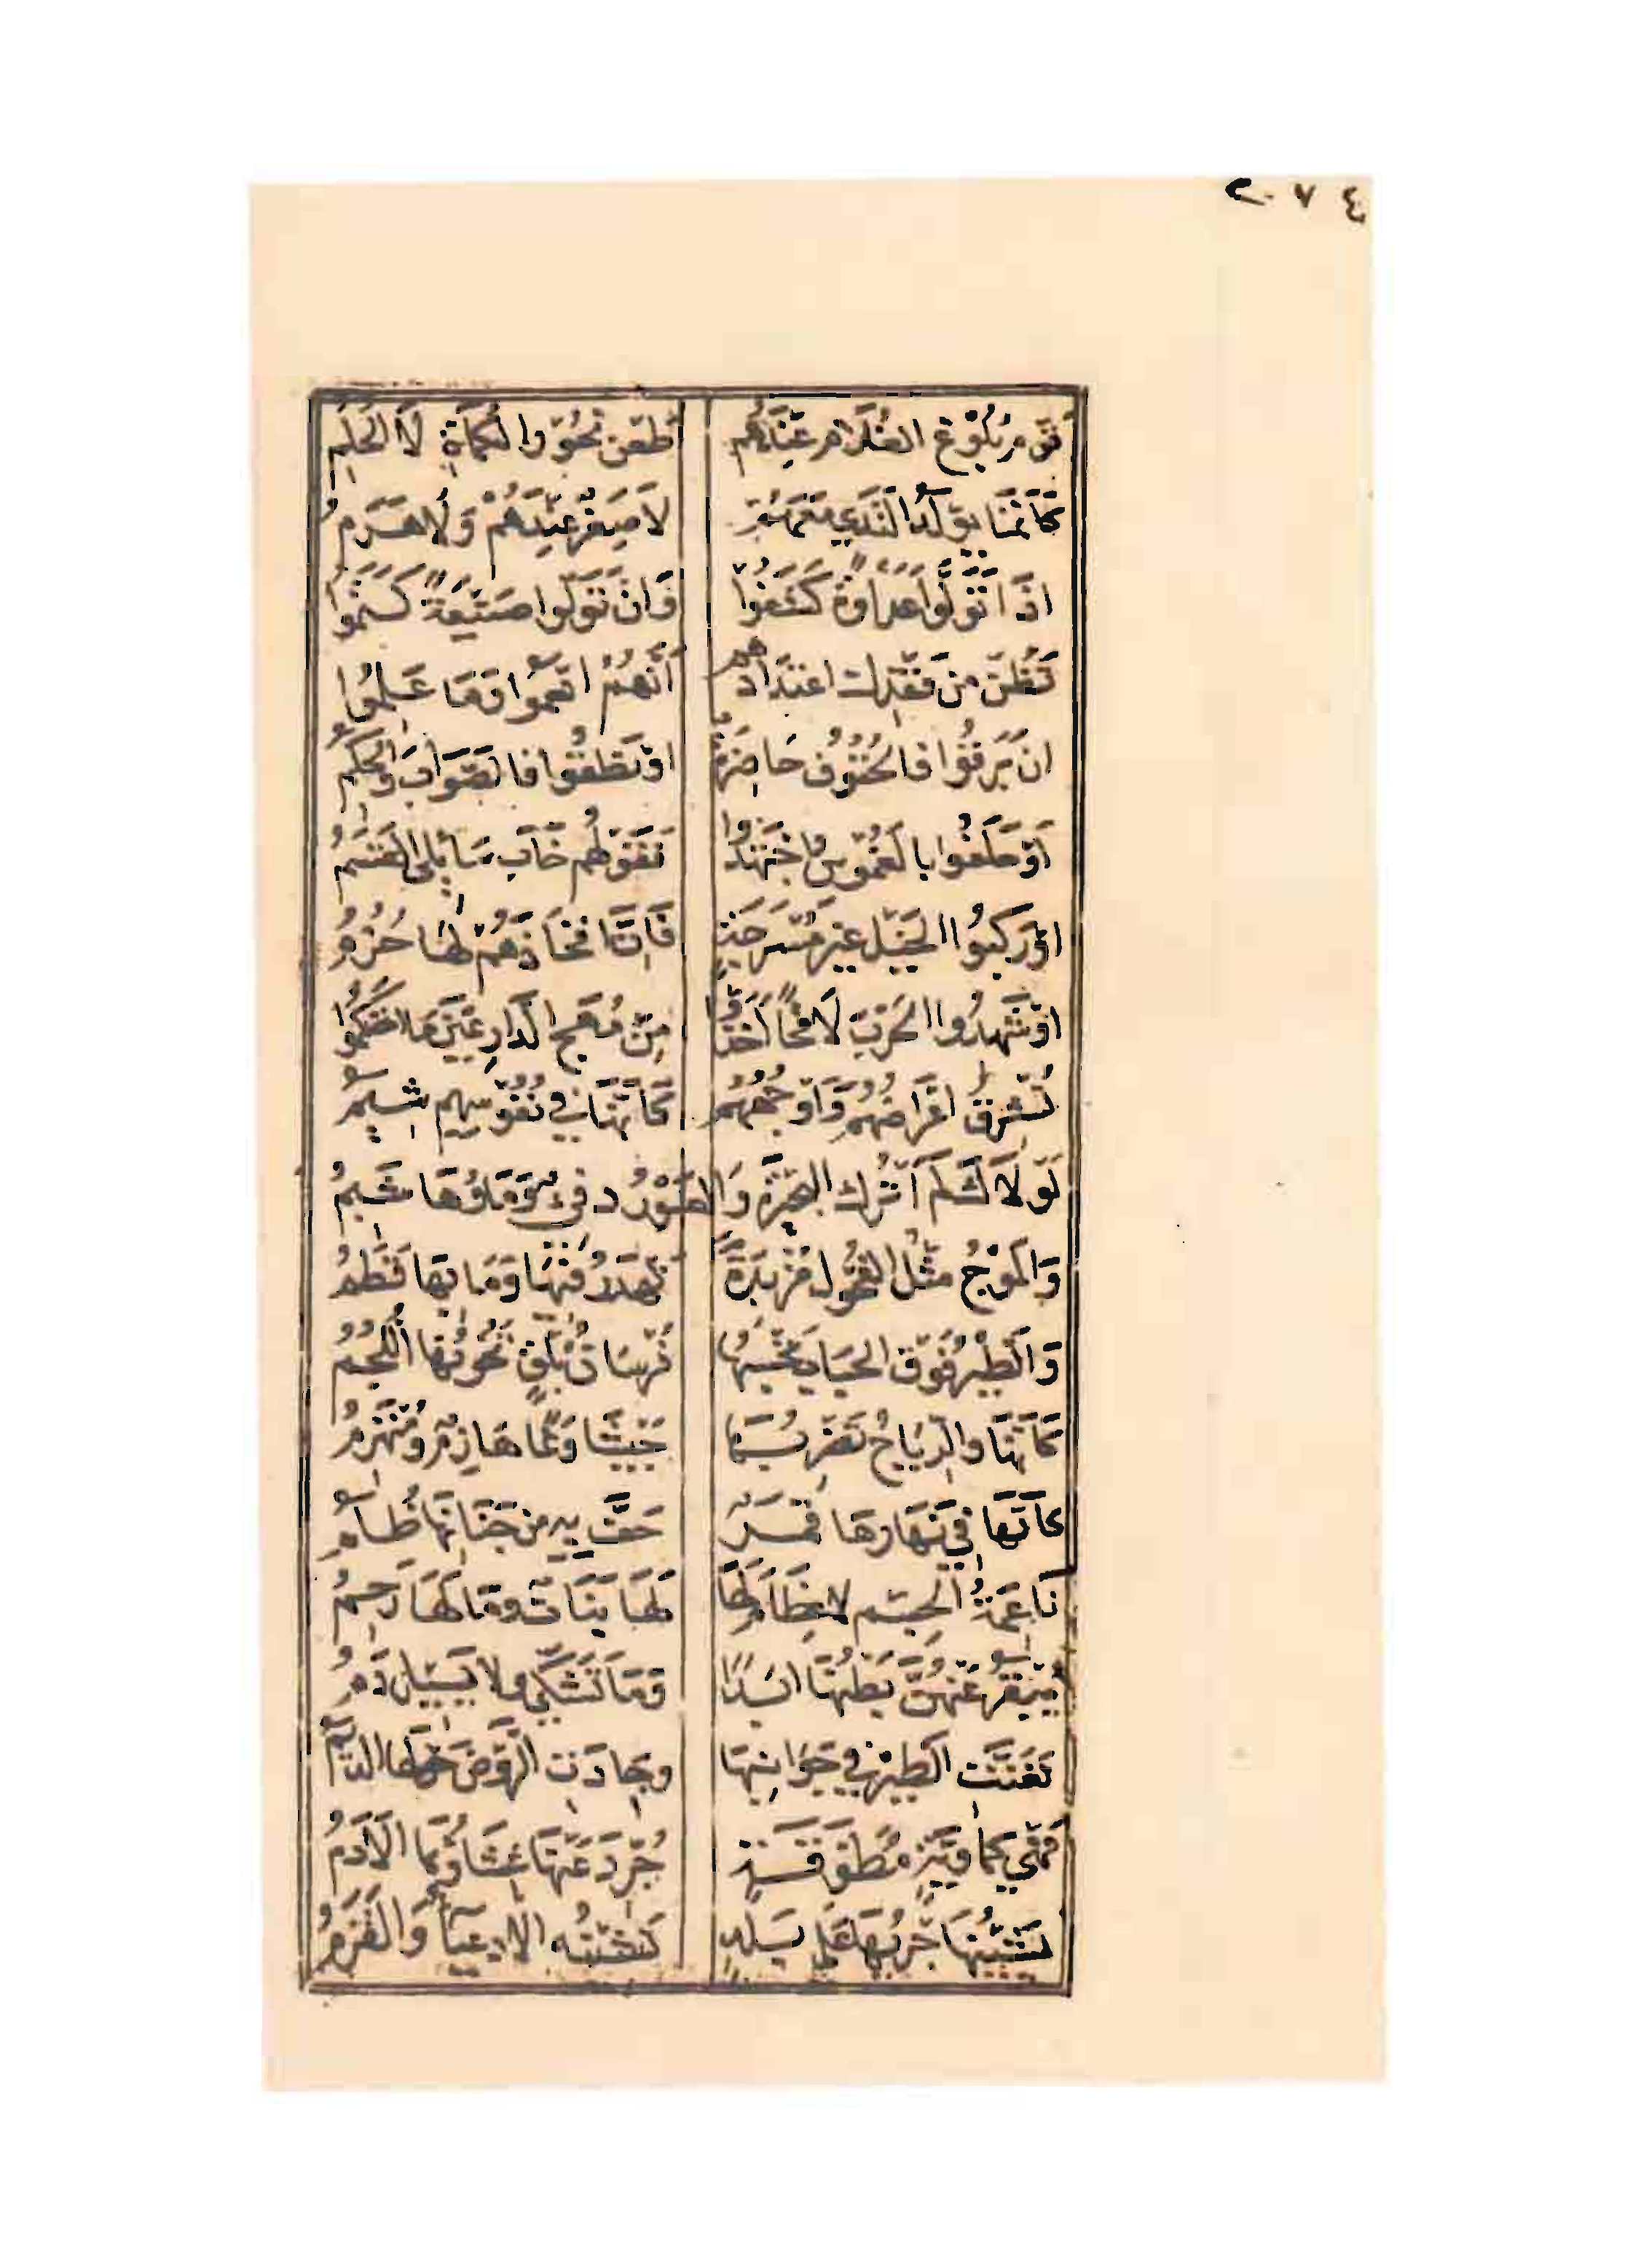 ٤ ٧ ٢
قوم بلوغ الغلام عندهم طعن نحور الكماة لا الحلم
كأنما يولد الندى معهم لا صغر عندهم ولا هرم
اذا تولوا عداوة كشفوا وان تولوا صنيعة كتموا
تظن من فقدك اعتدادهم أنهم انعموا وما علموا
ان برقوا فالحتوف حاضرة او نطقوا فالصواب والحكم
أو حلفوا بالغموس واجتهدوا فقولهم خاب سائلى القسم
او ركبوا الخيل غير مسرجة فان افخاذهم لها حزم
او شهدوا الحرب لاقحا اخذوا من مهج الدارعين ما احتكموا
تشرق اعراضهم وأوجههم كأنها في نفوسهم شيم
لولاك لم اترك البحيرة والغور دفىء وماؤها شبم
والموج مثل الفحول مزبدة تهدر فيها وما بها قطم
والطير فوق الحباب تحسبها فرسان بلق تخونها اللجم
كأنها والرياح تضربها جيشا وغا هازم ومنهزم
كأنها في نهارها قمر حف به من جنانها ظلم
ناعمة الجسم لا عظام لها لها بنات وما لها رحم
يبقر عنهن بطنها ابدا وما تشكى ولا يسيل دم
تغنت الطير في جوانبها وجادت الروض حولها الديم
فهي كماوية مطوقة جرد عنها غشاؤها الأدم
يشينها جريها على بلد تشينه الادعياء والقزم